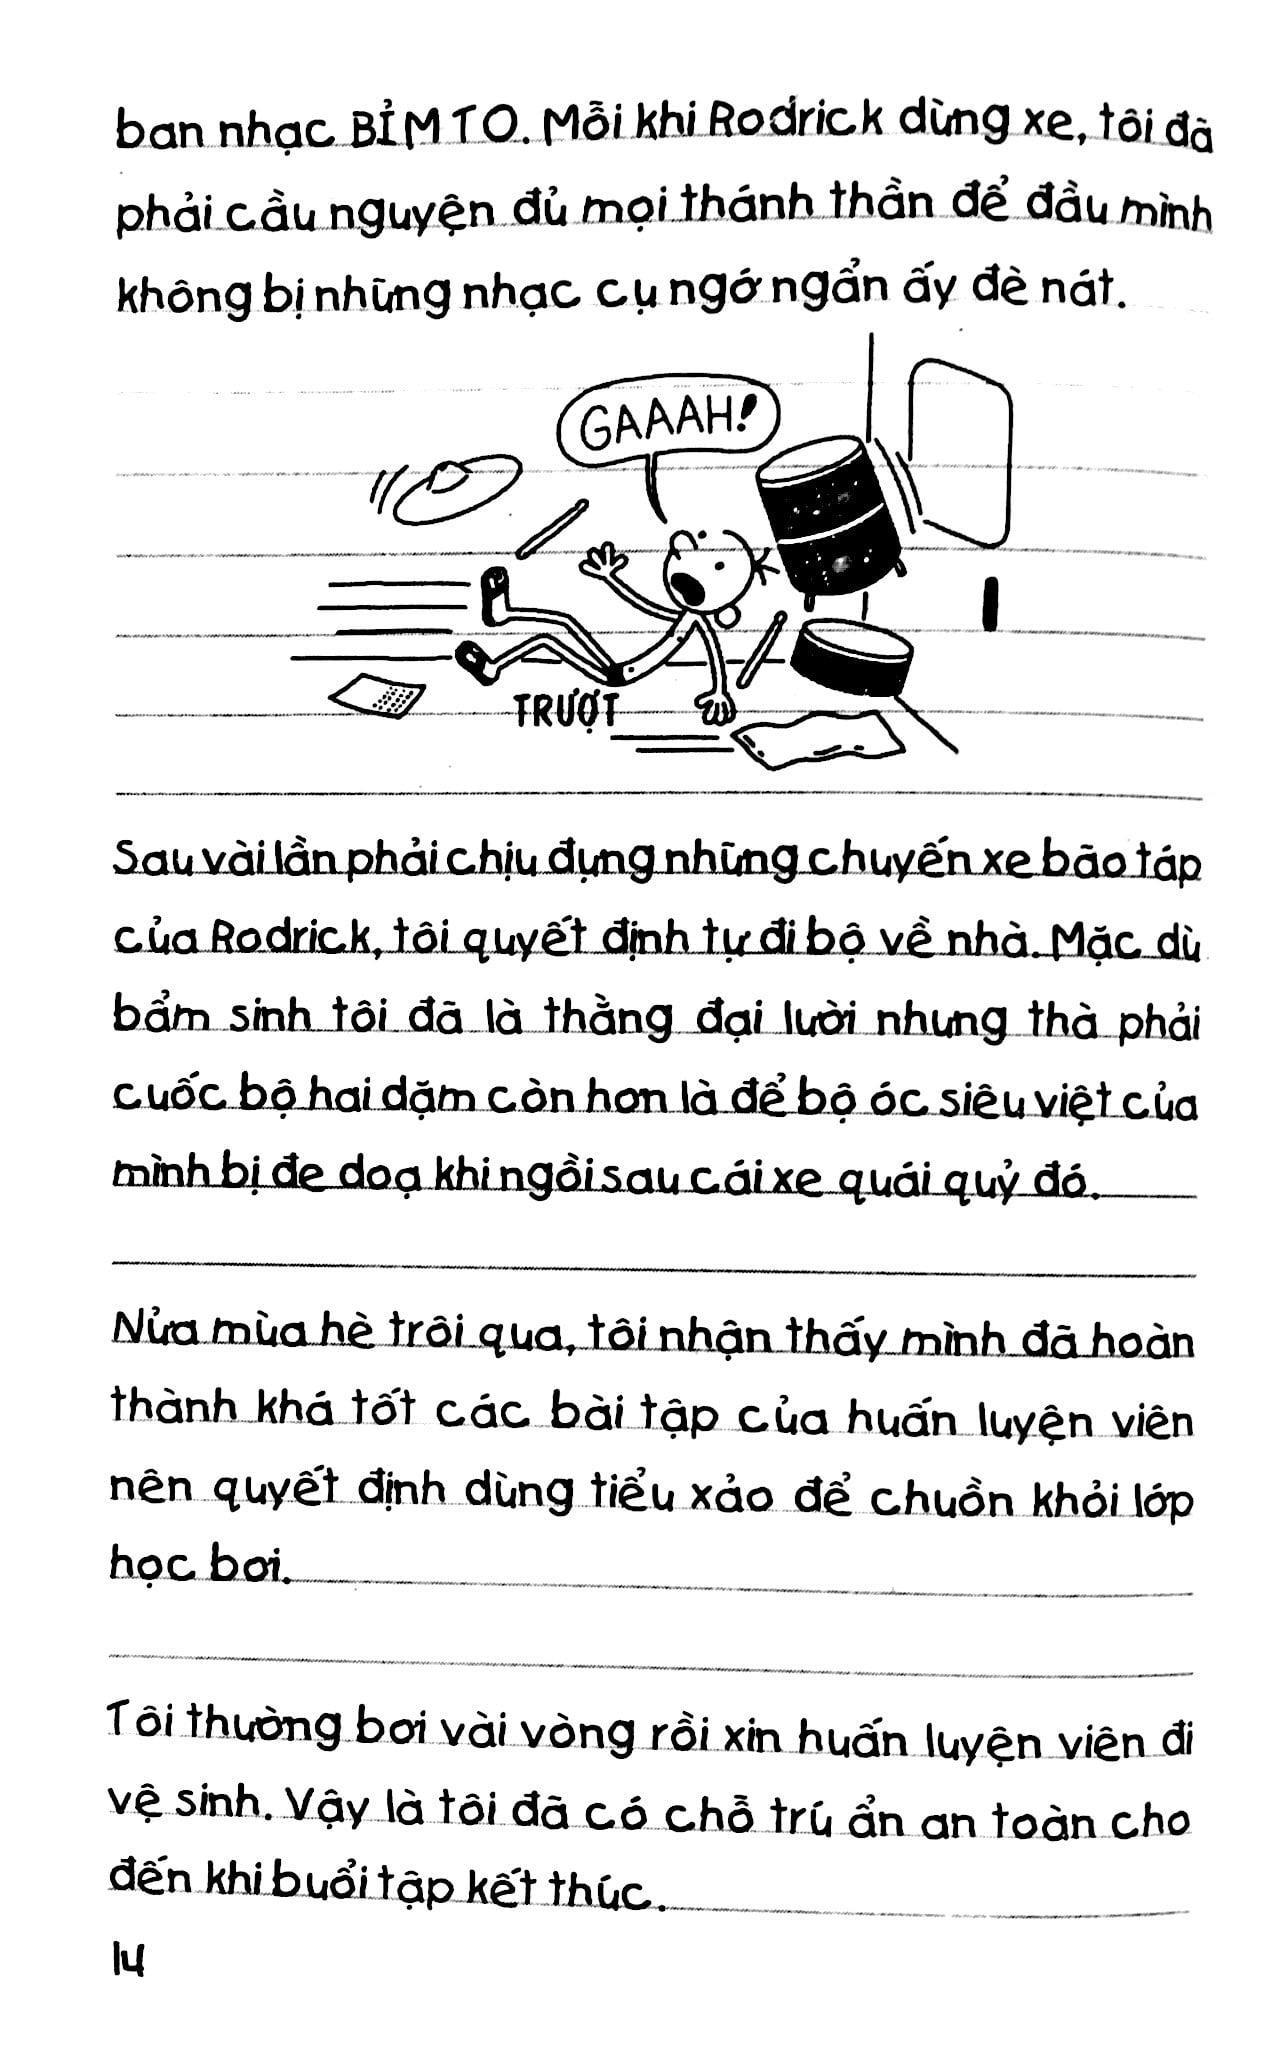 ban nhạc BỈM TO. Mỗi khi Rodrick dừng xe, tôi đã
phải cầu nguyện đủ mọi thánh thần để đầu mình
không bị những nhạc cụ ngớ ngẩn ấy đè nát.
GAAAH!
TRƯỢT
Sau vài lần phải chịu đựng những chuyến xe bão táp
của Rodrick, tôi quyết định tự đi bộ về nhà. Mặc dù
bẩm sinh tôi đã là thằng đại lười nhưng thà phải
cuốc bộ hai dặm còn hơn là để bộ óc siêu việt của
mình bị đe doạ khi ngồi sau cái xe quái quỷ đó.
Nửa mùa hè trôi qua, tôi nhận thấy mình đã hoàn
thành khá tốt các bài tập của huấn luyện viên
nên quyết định dùng tiểu xảo để chuồn khỏi lớp
học bơi.
Tôi thường bơi vài vòng rồi xin huấn luyện viên đi
vệ sinh. Vậy là tôi đã có chỗ trú ẩn an toàn cho
đến khi buổi tập kết thúc.
14